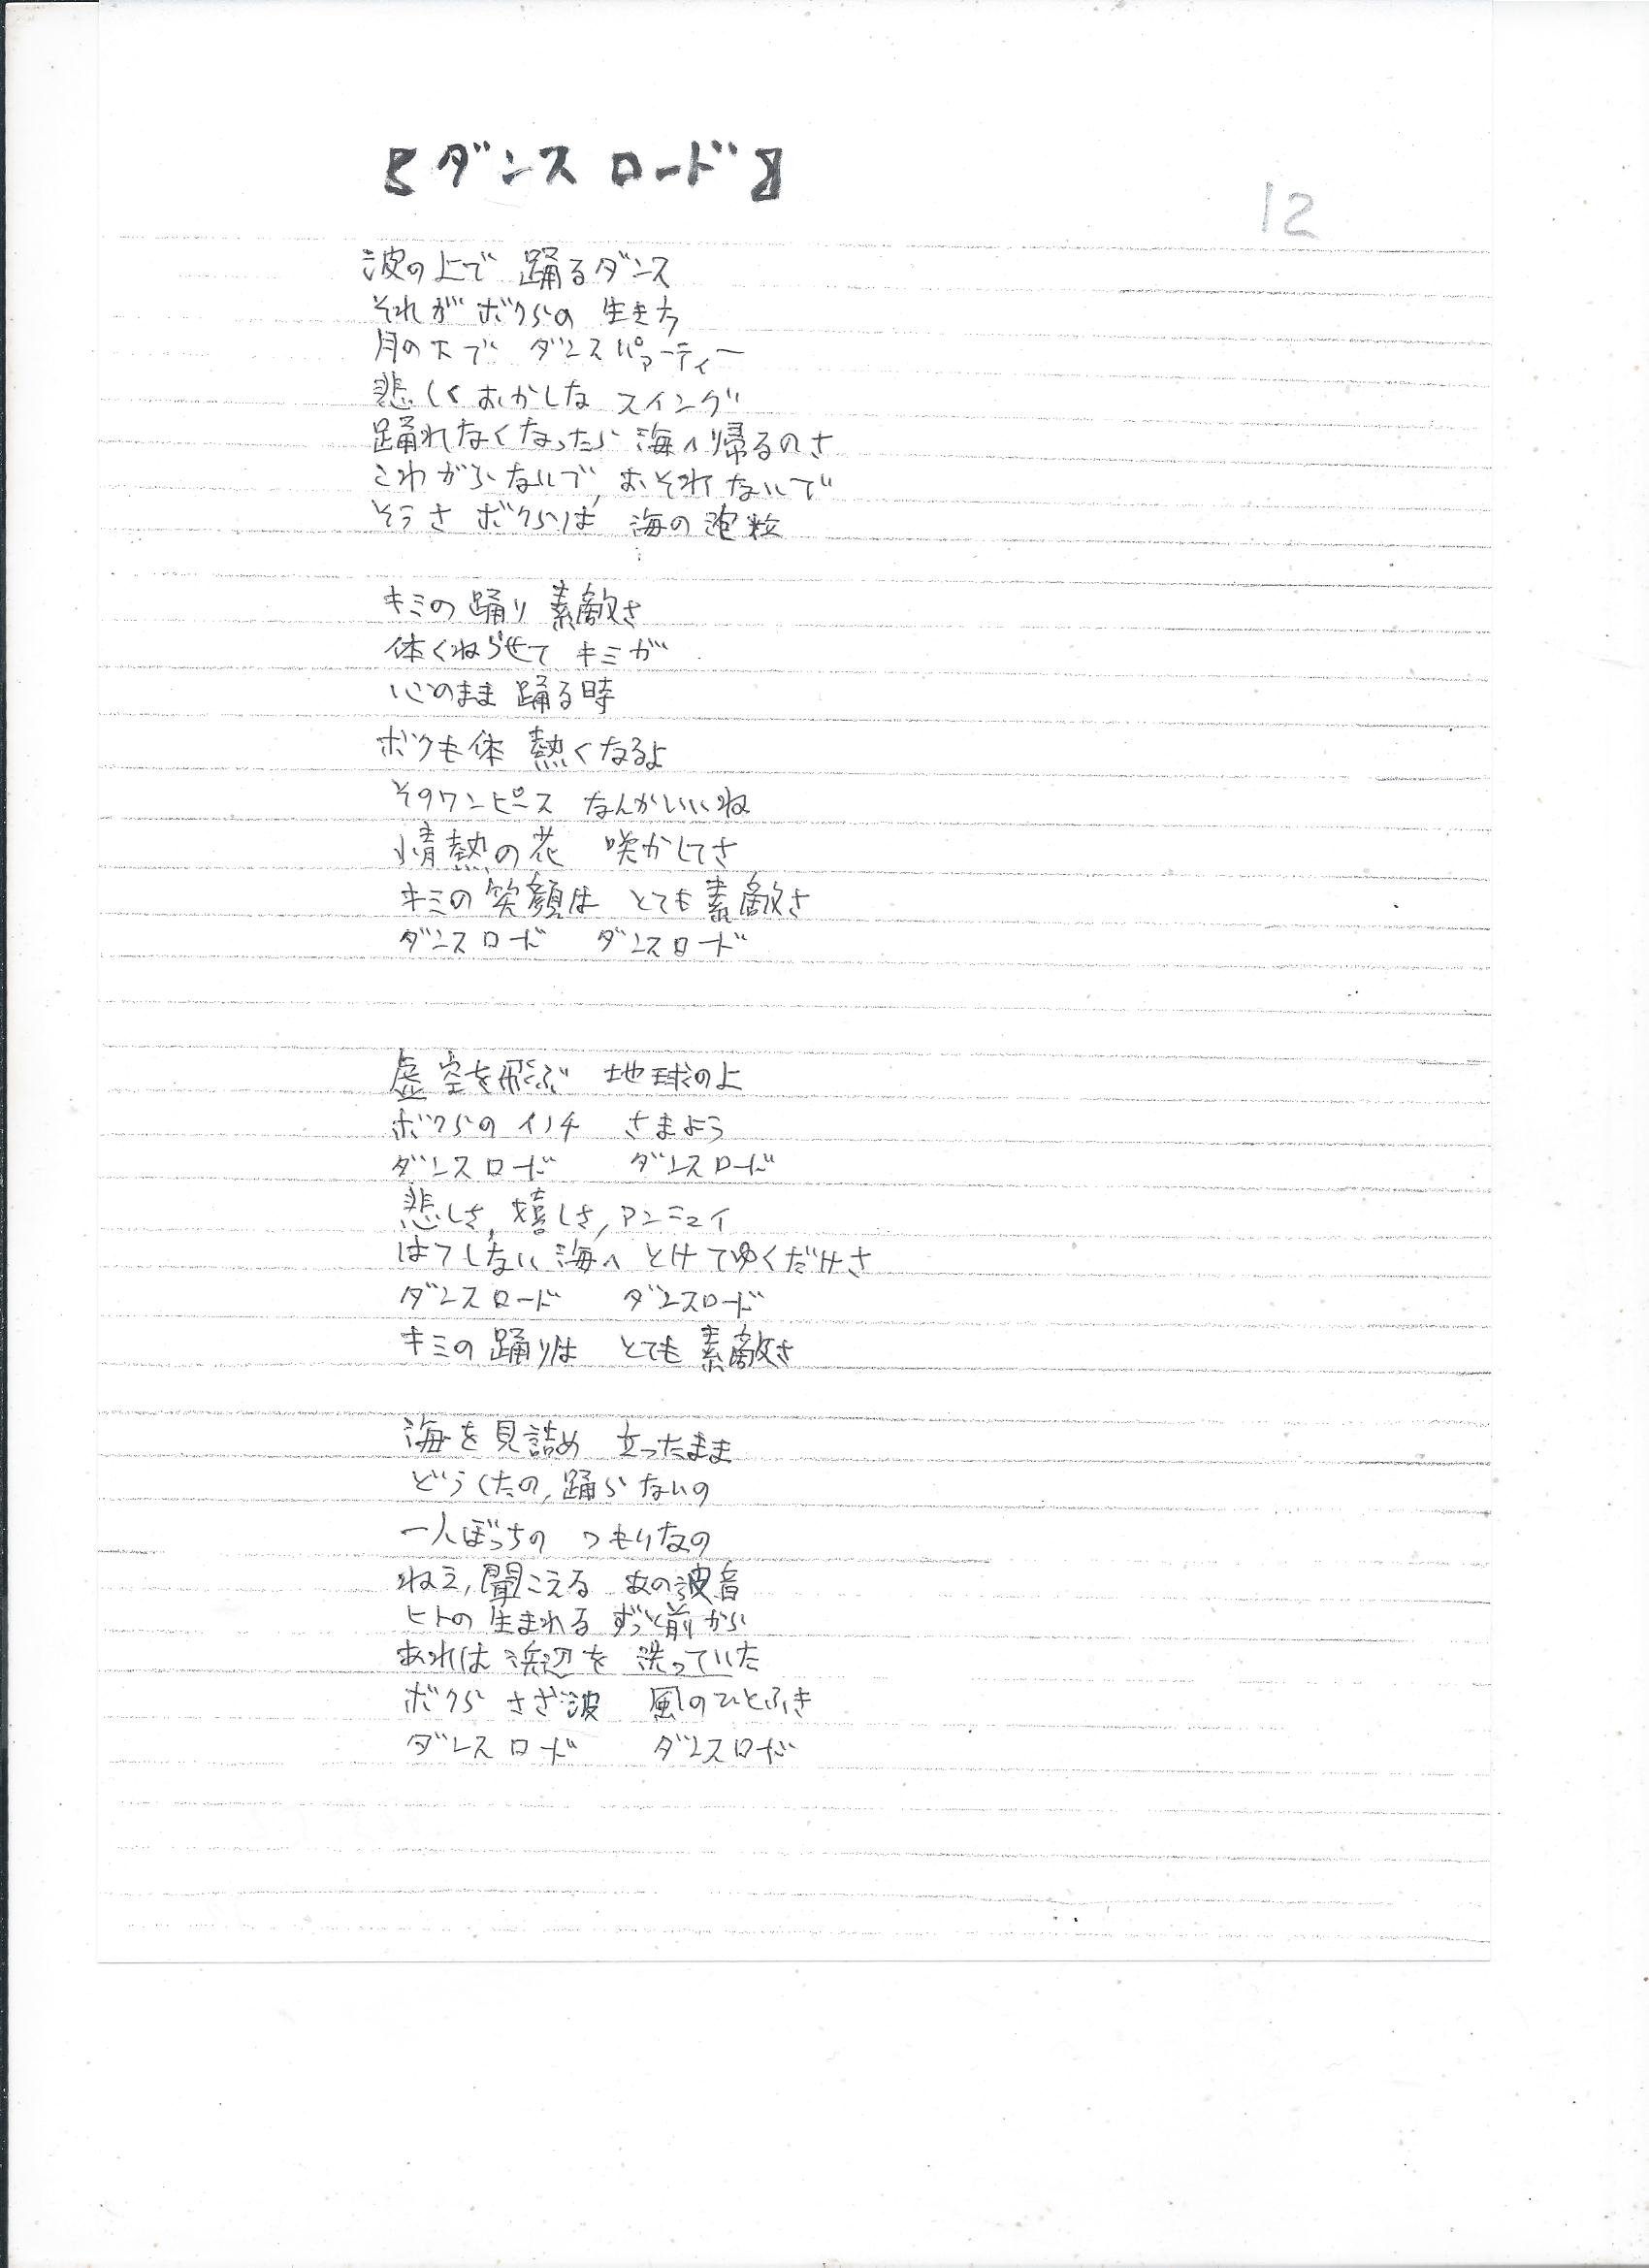 【ダンス ロード】
12
波の上で 踊るダンス
それが ボクらの 生き方
月の下で ダンスパァーティー
悲しく おかしな スイング
踊れなくなったら 海へ帰るのさ
こわがらないで, おそれないで
そうさ ボクらは 海の泡粒
キミの踊り 素敵さ
体くねらせて キミが
心のまま 踊る時
ボクも体 熱くなるよ
そのワンピース なんかいいね
情熱の花 咲かしてさ
キミの笑顔は とても素敵さ
ダンスロード ダンスロード
虚空を飛ぶ 地球の上
ボクらのイノチ さまよう
ダンスロード ダンスロード
悲しさ, 嬉しさ, アンニュイ
はてしない 海へ とけてゆくだけさ
ダンスロード ダンスロード
キミの踊りは とても素敵さ
海を見詰め 立ったまま
どうしたの, 踊らないの
一人ぼっちの つもりなの
ねえ, 聞こえる あの波音
ヒトの生まれる ずっと前から
あれは浜辺を 洗っていた
ボクら さざ波 風のひとふき
ダンスロード ダンスロード